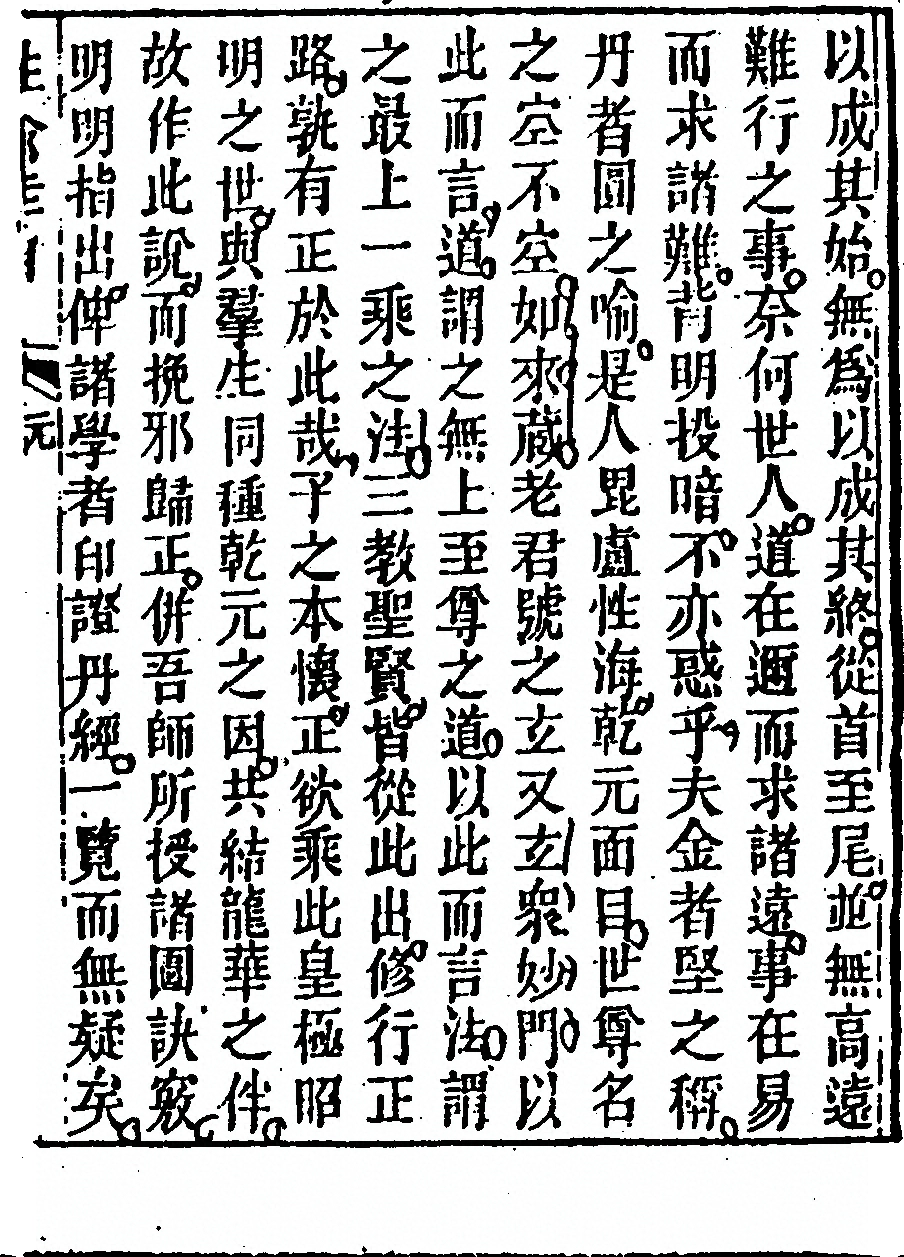 以成其始無爲以成其終從首至尾並無高遠
難行之事奈何世人道在邇而求諸遠事在易
而求諸難背明投暗不亦惑乎夫金者堅之稱
丹者圓之喻是人毘盧性海乾元面目世尊名
之空不空如來藏老君號之玄又玄衆妙門以
此而言道謂之無上至尊之道以此而言法謂
之最上一乘之法三教聖賢皆從此出修行正
路孰有正於此哉予之本懷正欲乘此皇極昭
明之世與羣生同種乾元之因共結龍華之伴
故作此說而挽邪歸正併吾師所授諸圖訣竅
明明指出俾諸學者印證丹經一覽而無疑矣
元